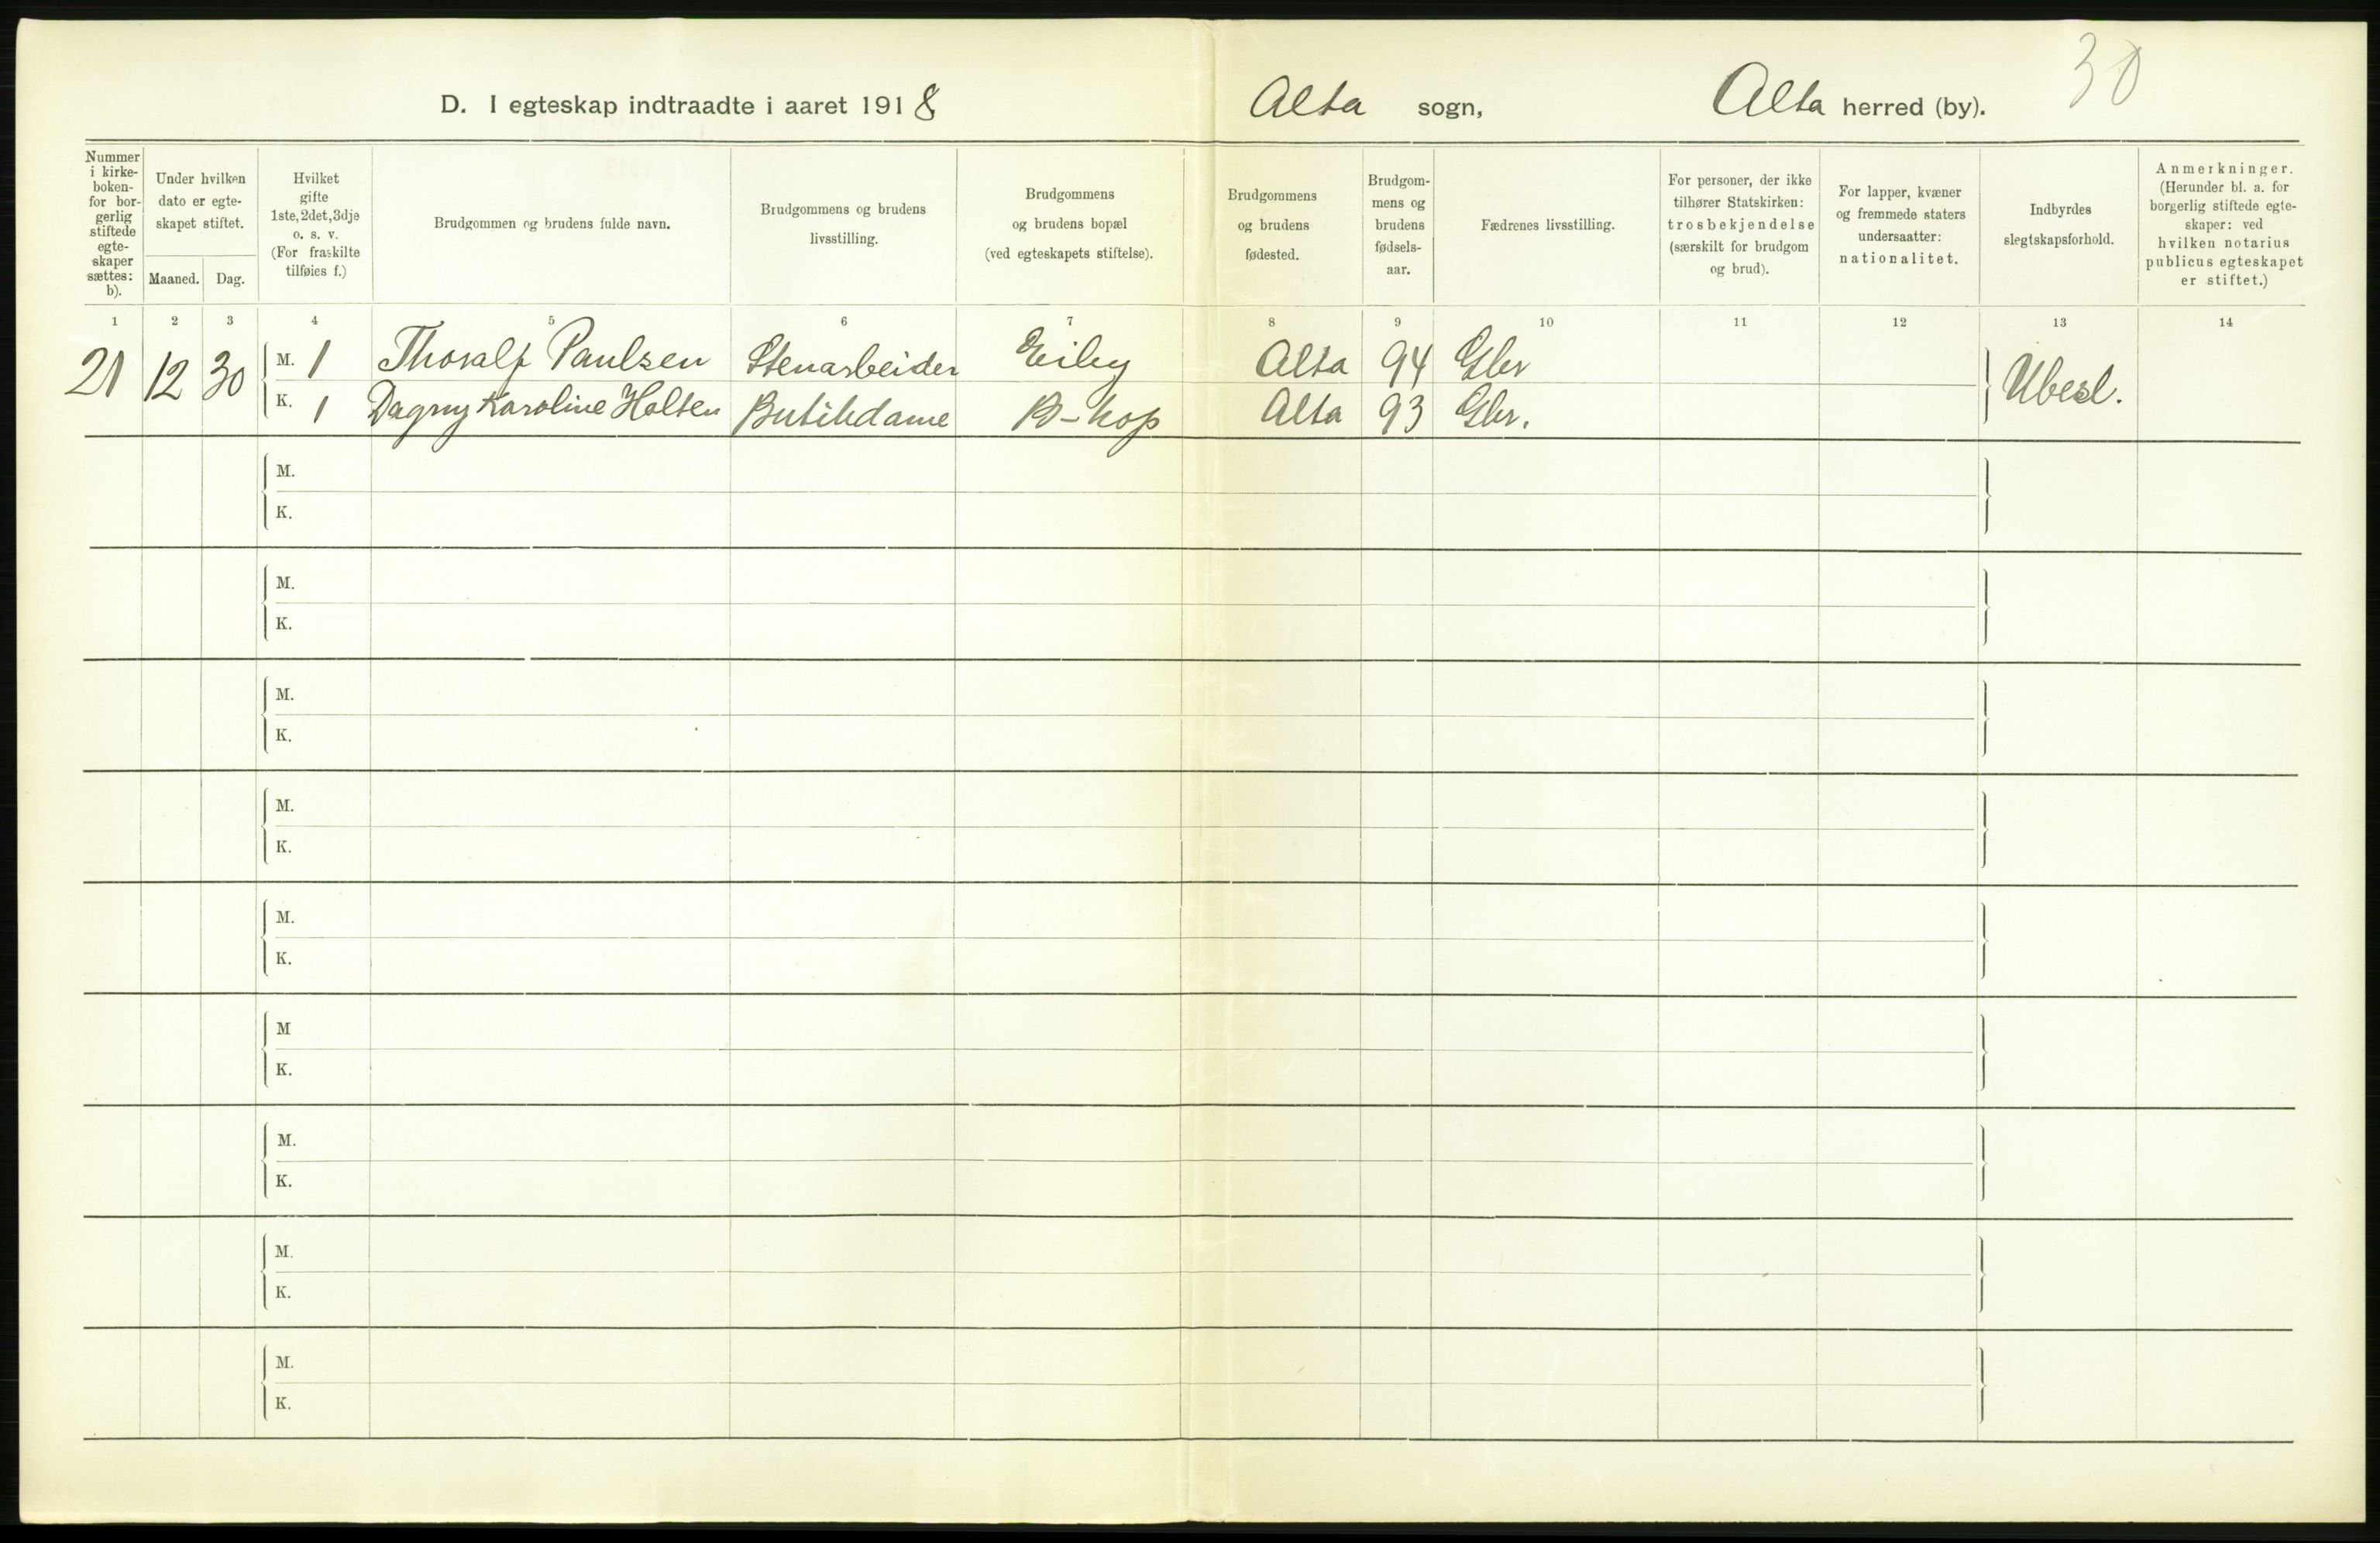 30
D. I egteskap indtraadte i aaret 1918 Alta sogn, Alta herred (by).
Nummer
i kirke-
boken-
for bor-
gerlig
stiftede
egte-
skaper
sættes:
b).
Under hvilken
dato er egte-
skapet stiftet.
Maaned. Dag.
Hvilket
gifte
1ste, 2det, 3dje
o. s. v.
(For fraskilte
tilføies f.)
Brudgommen og brudens fulde navn.
Brudgommens og brudens
livsstilling.
Brudgommens
og brudens bopæl
(ved egteskapets stiftelse).
Brudgommens
og brudens
fødested.
Brudgom-
mens og
brudens
fødsels-
aar.
Fædrenes livsstilling.
For personer, der ikke
tilhører Statskirken:
trosbekjendelse
(særskilt for brudgom
og brud).
For lapper, kvæner
og fremmede staters
undersaatter:
nationalitet.
Indbyrdes
slegtskapsforhold.
Anmerkninger.
(Herunder bl. a. for
borgerlig stiftede egte-
skaper: ved
hvilken notarius
publicus egteskapet
er stiftet.)
1 2 3 4 5 6 7 8 9 10 11 12 13 14
21 12 30 M. 1 Thoralf Paulsen Stenarbeider Eiby Alta 94 Gbr Ubesl.
K. 1 Dagny Karoline Holten Butikdame B-kop Alta 93 Gbr.
M.
K.
M.
K.
M.
K.
M.
K.
M.
K.
M
K.
M.
K.
M.
K.
M.
K.